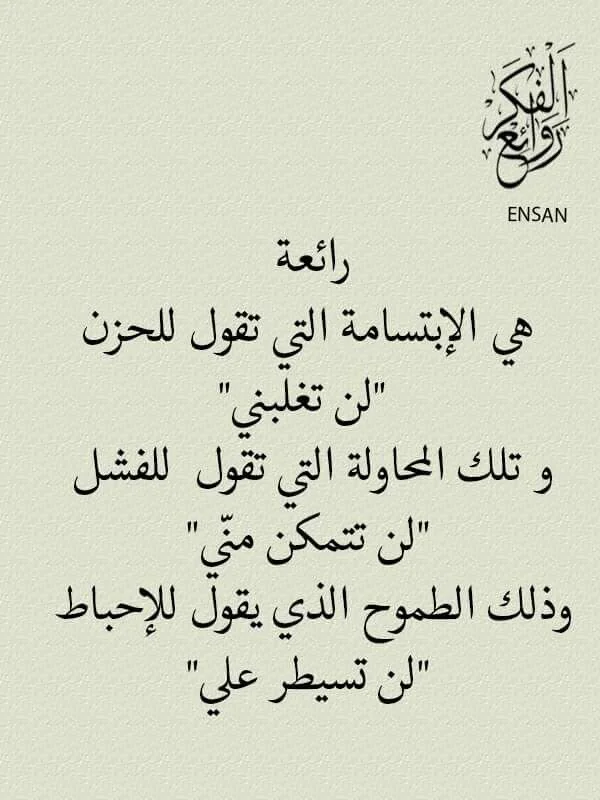 روائع الفكر
ENSAN
رائعة
هي الإبتسامة التي تقول للحزن
"لن تغلبني"
و تلك المحاولة التي تقول للفشل
"لن تتمكن منّي"
وذلك الطموح الذي يقول للإحباط
"لن تسيطر علي"